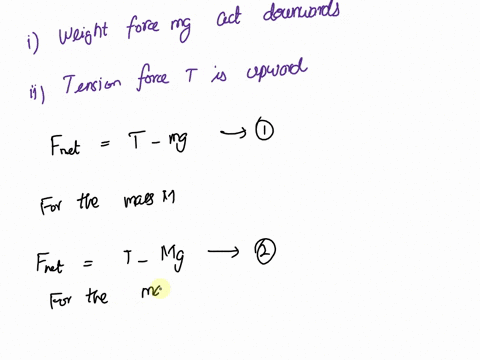 i) Weight force mg act downwards
ii) Tension force T is upword
Fnet = T - mg → ①
For the mass M
Fnet = T - Mg → ②
For the ma